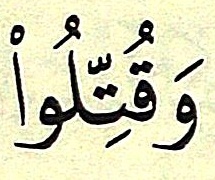 وَقُتِّلُوا۟